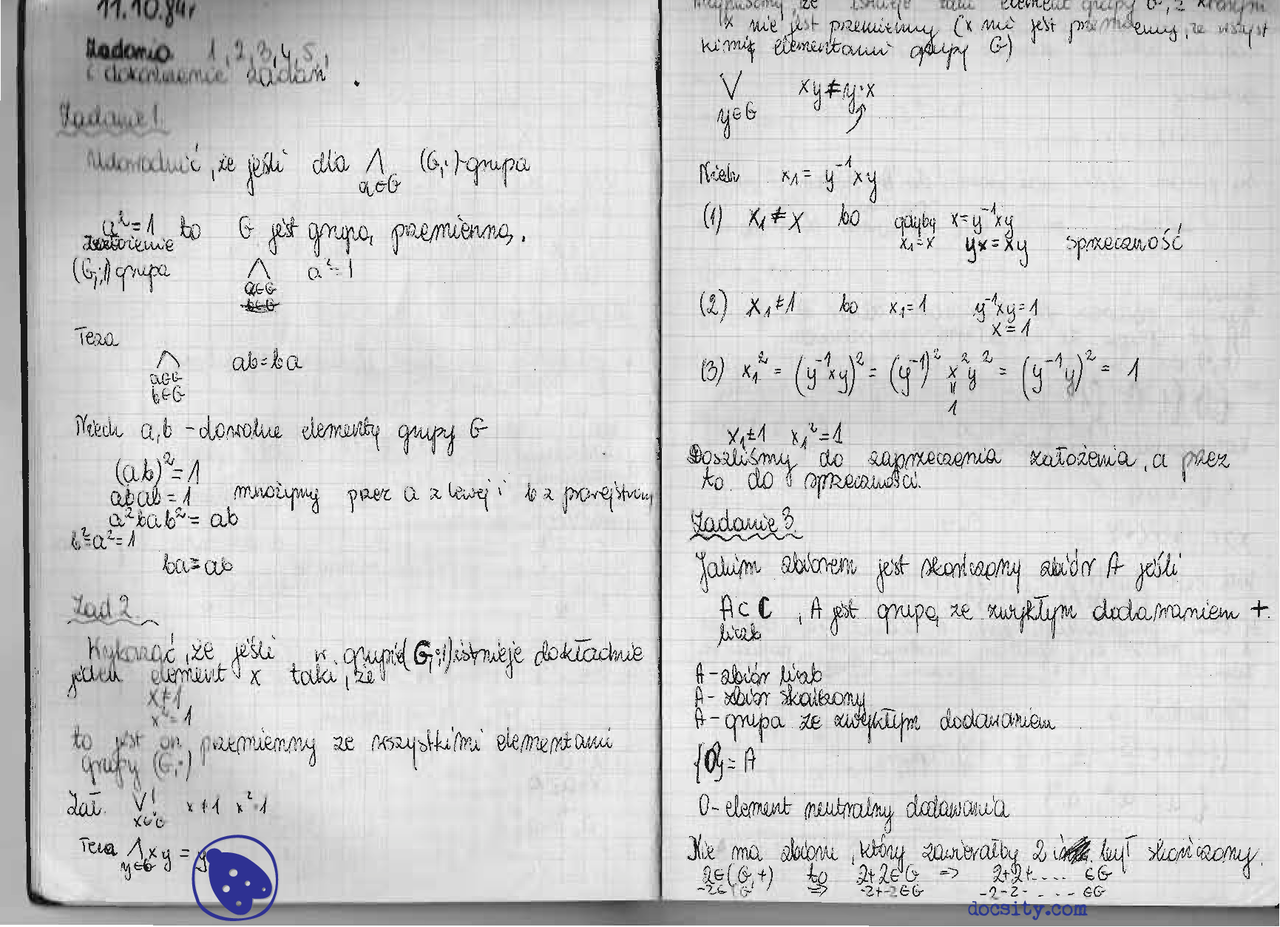 11.10.84r
Zadania 1, 2, 3, 4, 5,
i dokończenie zadań.
Zadanie 1.
Udowodnić, że jeśli dla ⋀ (G,·)-grupa
a∈G
a²=1 to G jest grupą przemienną.
Założenie
(G,·) grupa ⋀ a²=1
a∈G
b∈G
Teza
⋀ ab=ba
a∈G
b∈G
Niech a,b - dowolne elementy grupy G
(ab)²=1
abab=1 mnożymy przez a z lewej i b z prawej strony
a²bab²=ab
b²=a²=1
ba=ab
Zad 2
Wykazać, że jeśli w grupie (G,·) istnieje dokładnie
jeden element x taki, że
x≠1
x²=1
to jest on przemienny ze wszystkimi elementami
grupy (G,·)
Zał. ⋁! x≠1 x²=1
x∈G
Teza ⋀ xy = y
y∈G
x nie jest przemienny (x nie jest przemienny, ze wszyst
kimi elementami grupy G)
⋁ xy≠y·x
y∈G
Niech x₁=y⁻¹xy
(1) x₁≠x bo gdyby x=y⁻¹xy
x₁=x yx=xy sprzeczność
(2) x₁≠1 bo x₁=1 y⁻¹xy=1
x=1
(3) x₁²=(y⁻¹xy)²=(y⁻¹)²x²y²=(y⁻¹y)²=1
॥
1
x₁≠1 x₁²=1
Doszliśmy do zaprzeczenia założenia, a przez
to do sprzeczności.
Zadanie 3.
Jakim zbiorem jest skończony zbiór A jeśli
A⊂C, A jest grupą ze zwykłym dodawaniem +.
liczb
A-zbiór liczb
A-zbiór skończony
A-grupa ze zwykłym dodawaniem
{0}=A
0-element neutralny dodawania
Nie ma zbioru, który zawierałby 2 i był skończony.
2∈(G,+) to 2+2∈G => 2+2+.... ∈G
-2∈(G, => -2+-2∈G -2-2-....∈G
docsity.com